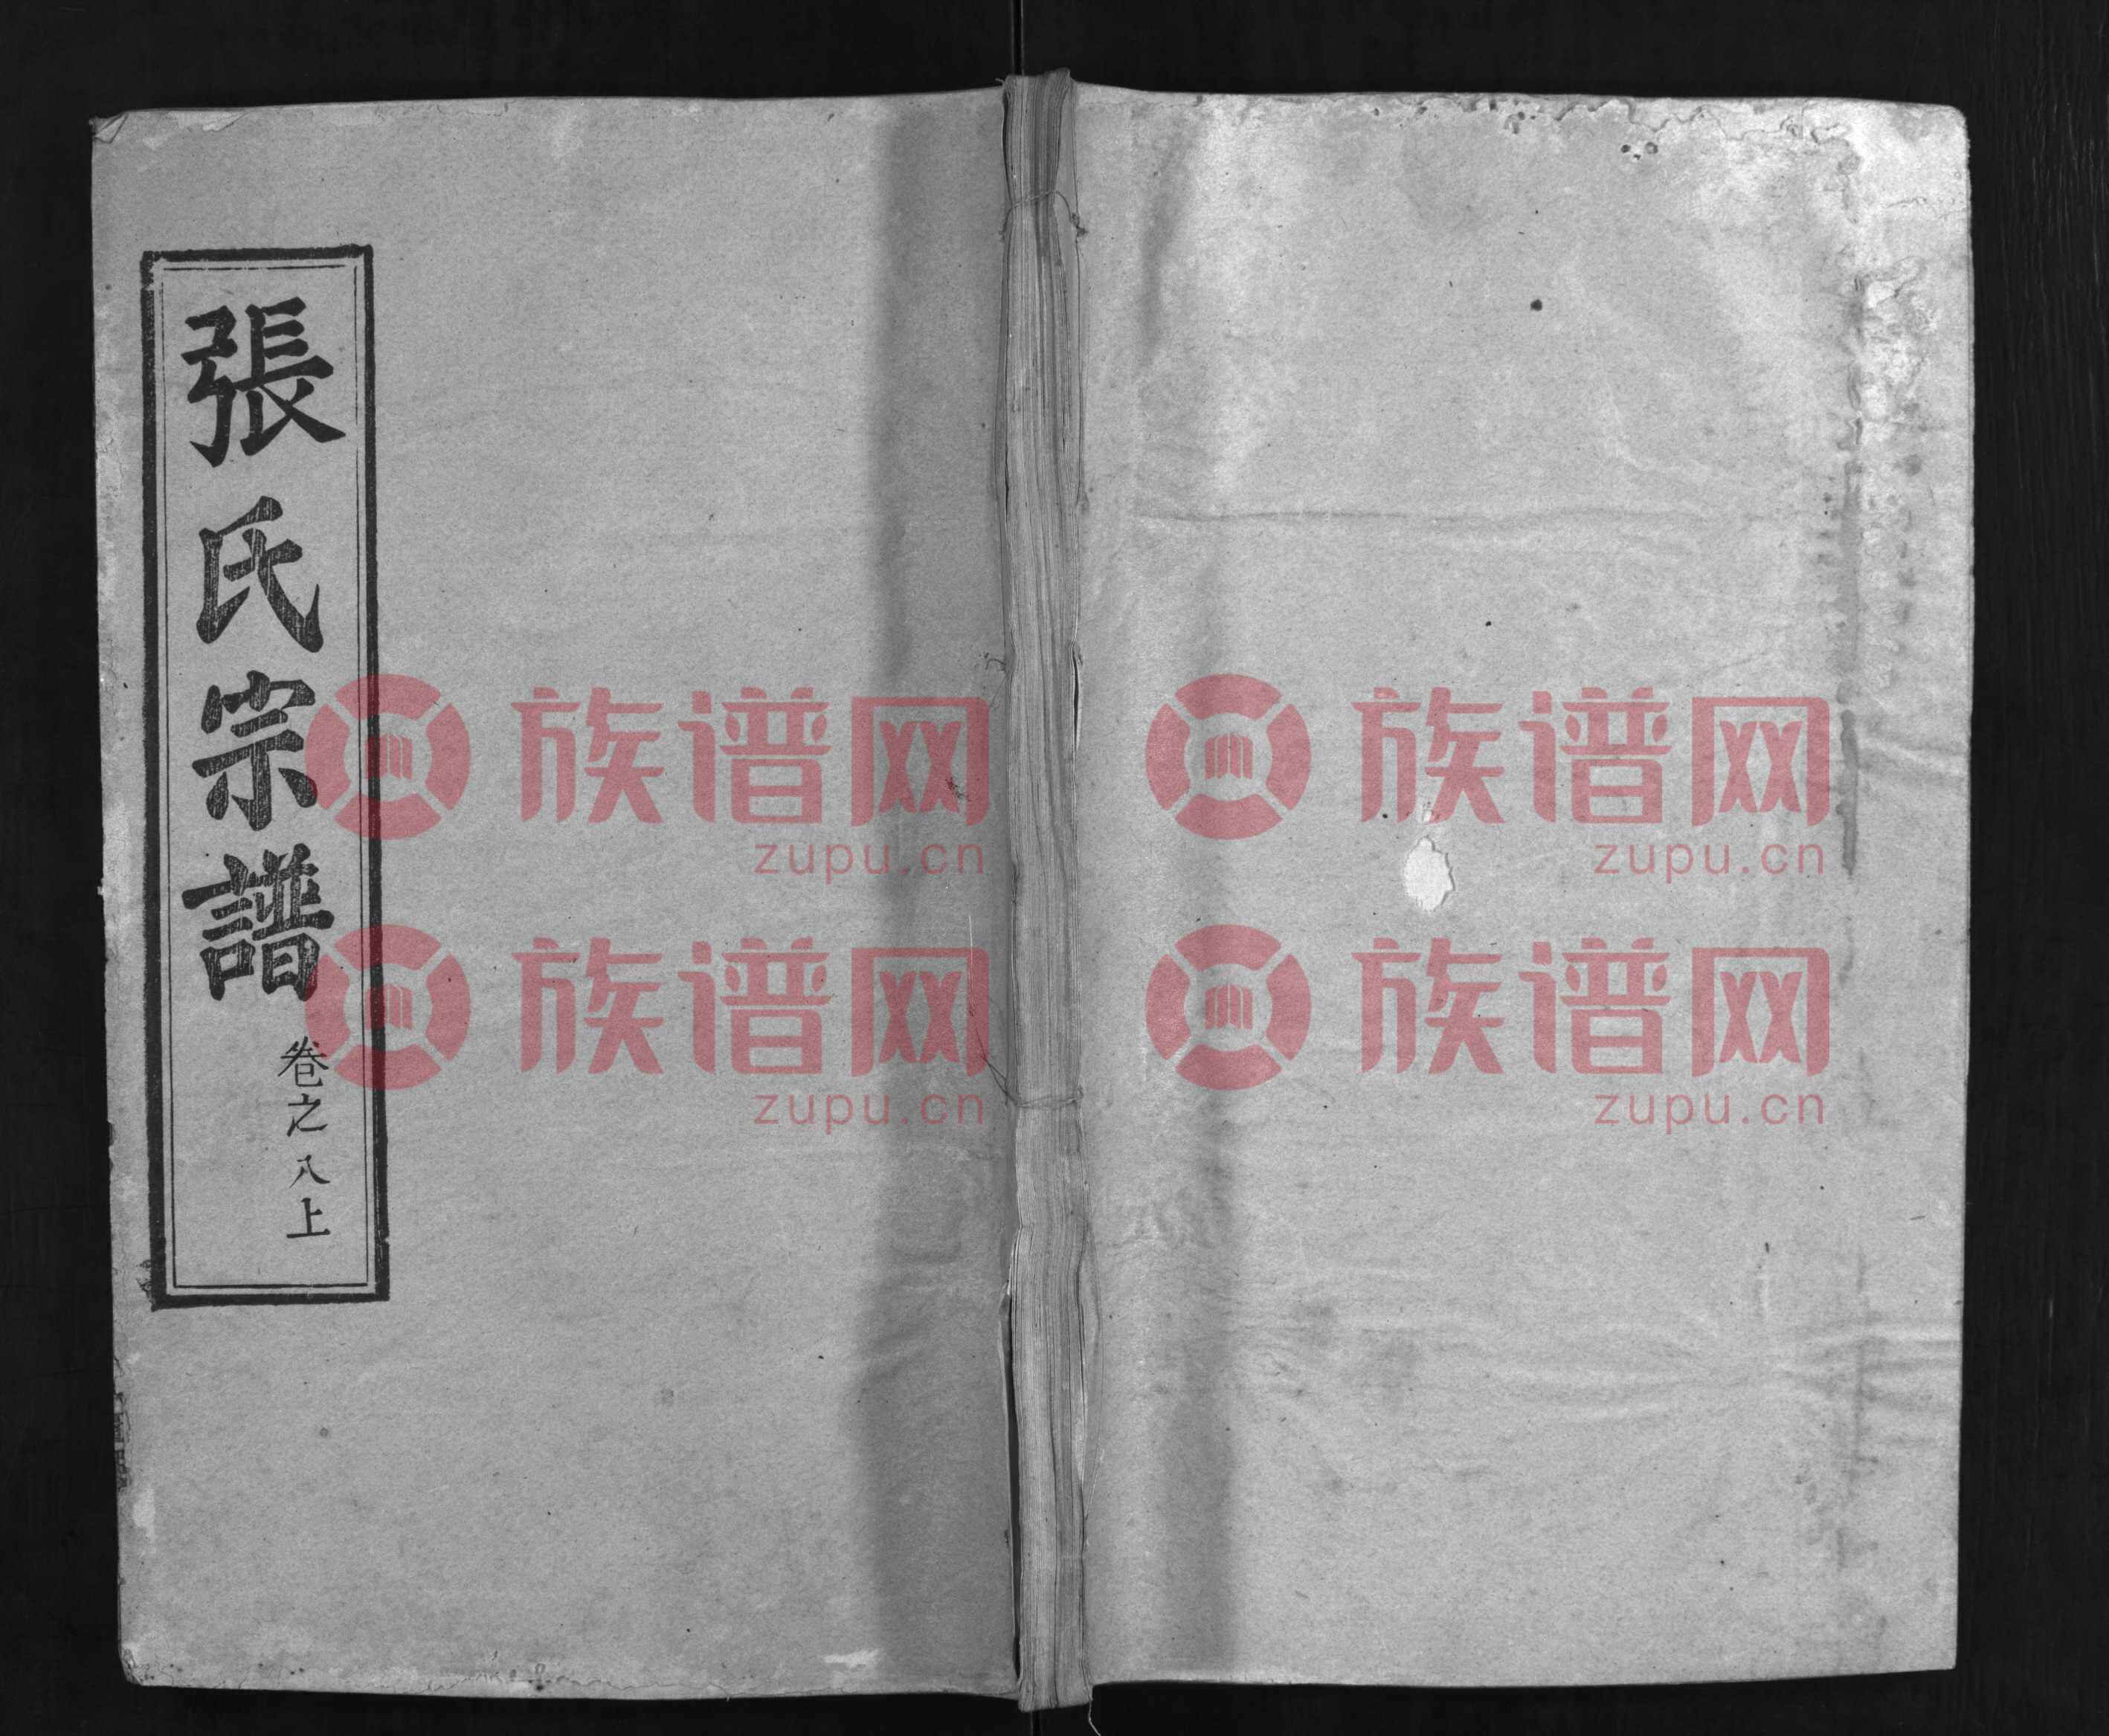 張氏宗譜
卷之八上
族谱网
zupu.cn
族谱网
zupu.cn
族谱网
zupu.cn
族谱网
zupu.cn